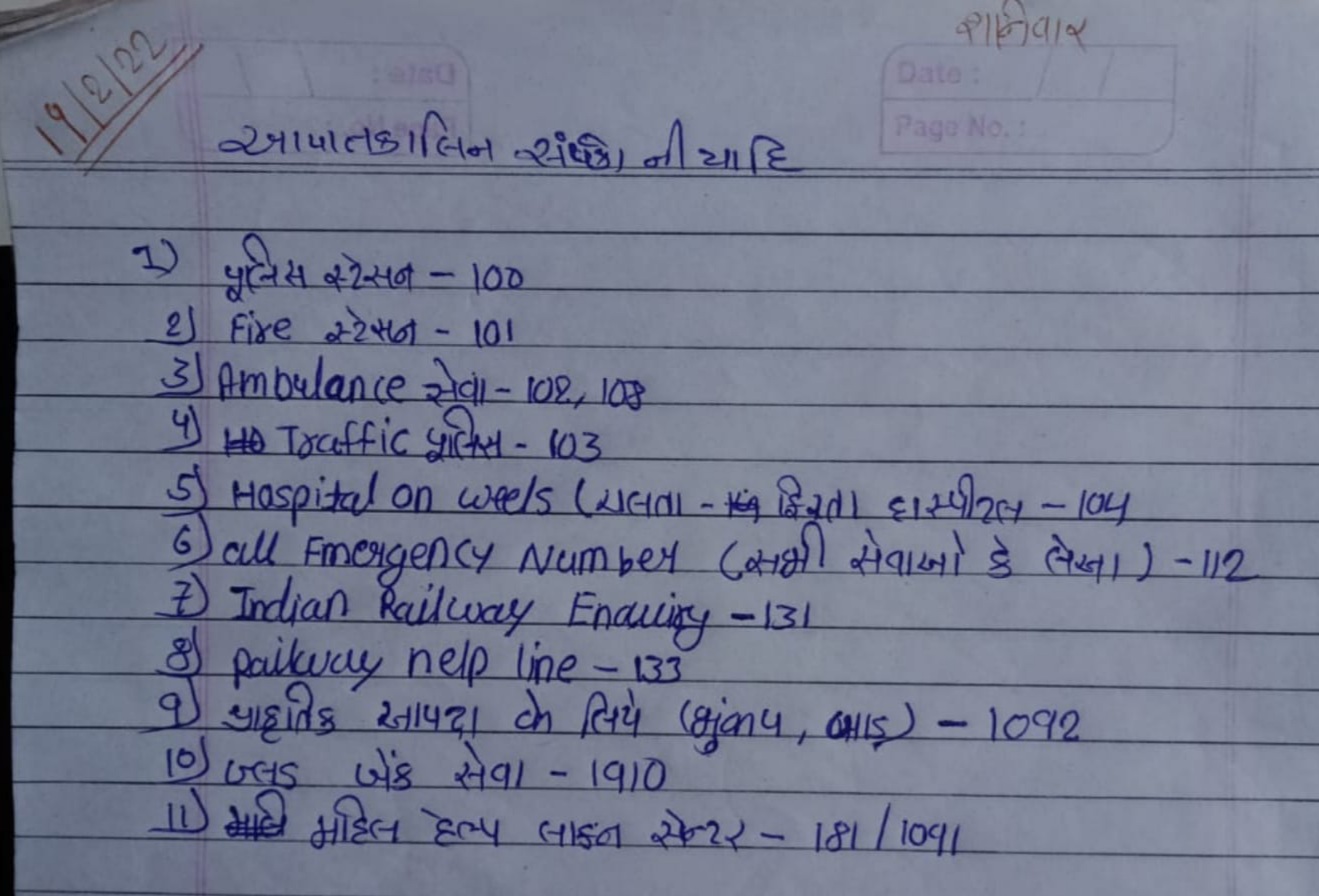 શનિવાર
19/2/22
Date :
Page No. :
આપાતકાલિન સંપર્કો ની યાદિ
1) પુલિસ સ્ટેસન - 100
2) Fire સ્ટેસન - 101
3) Ambulance સેવા - 102, 108
4) Traffic પુલિસ - 103
5) Hospital on weels (ચલતા - ફિરતા હાસ્પીટલ - 104
6) all Emergency Number (સભી સેવાઓ કે લિએ) - 112
7) Indian Railway Enquiry - 131
8) Railway help line - 133
9) પ્રાકૃતિક આપદા કે લિયે (ભુકંપ, બાઢ) - 1092
10) બ્લડ બેંક સેવા - 1910
11) મહિલ હેલ્પ લાઇન સેન્ટર - 181/1091